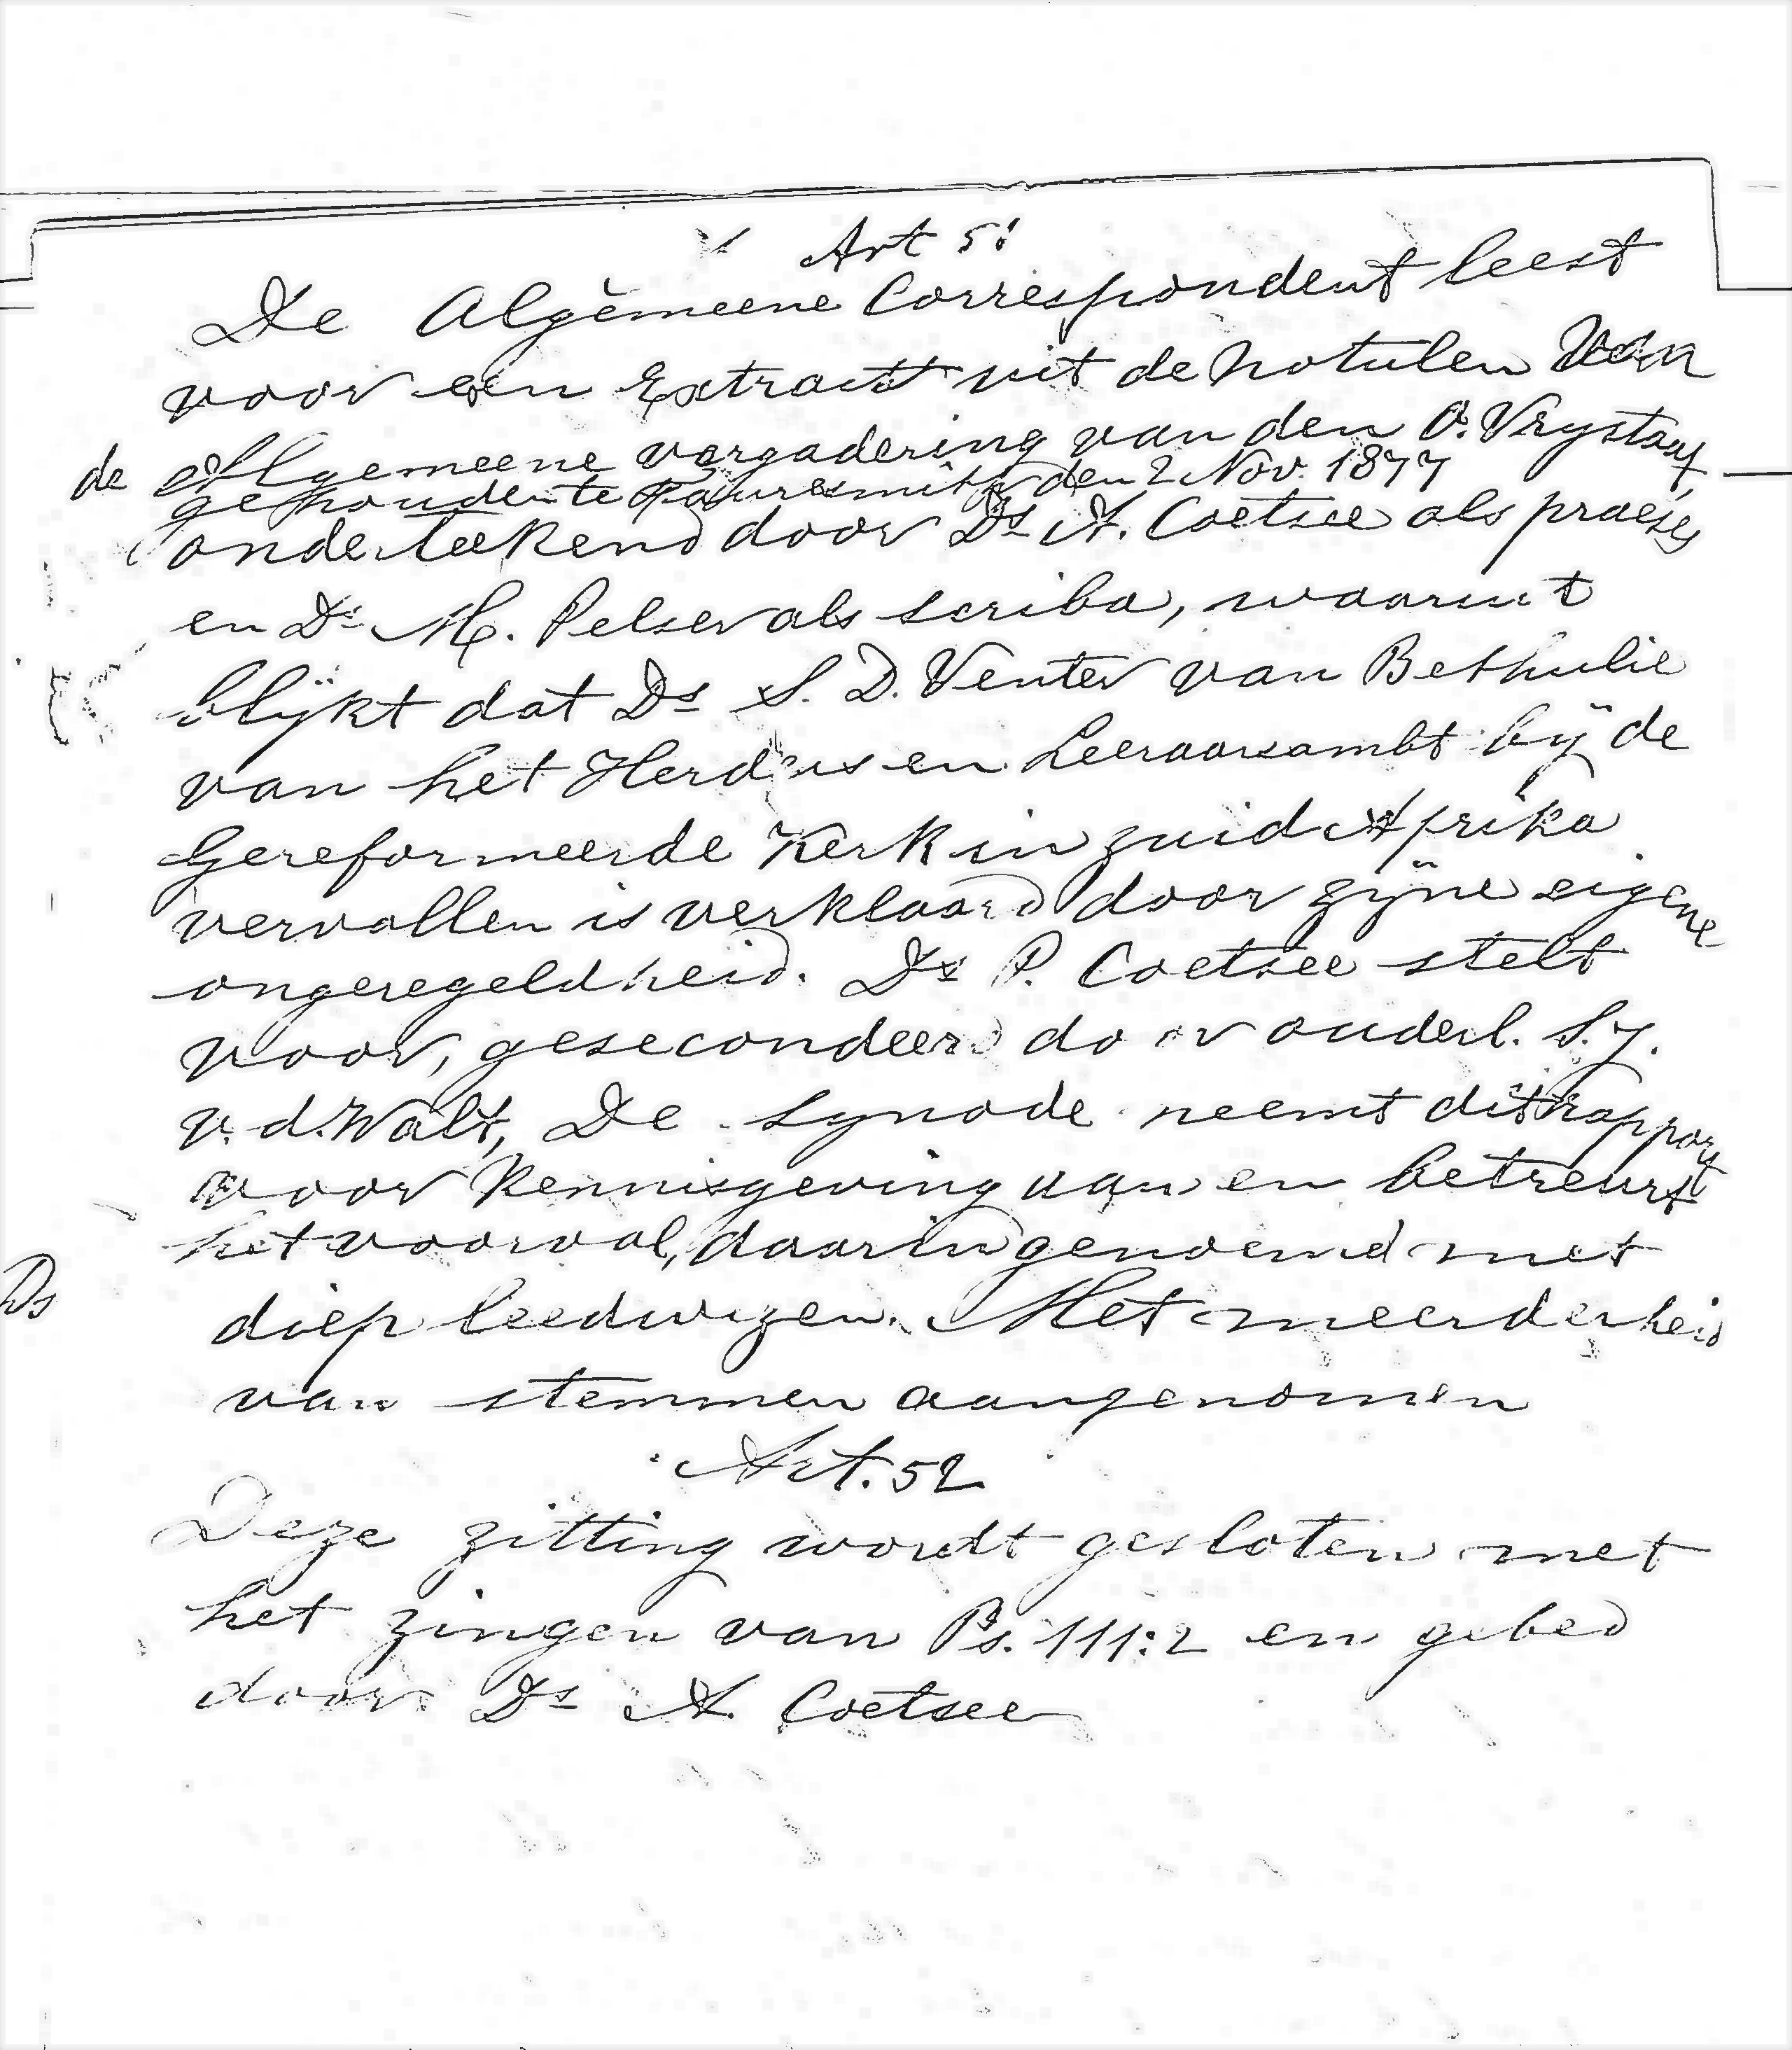 Art 51
De Algemeene Correspondent leest
voor een Extract uit de Notulen van
de Algemeene vergadering van den O. Vrystaat
gehouden te Fauresmith den 2 Nov. 1877
onderteekend door Ds A. Coetsee als praeses
en Ds M. Pelser als scriba, waaruit
blijkt dat Ds S. D. Venter van Bethulie
van het Herders en Leeraarsambt bij de
Gereformeerde Kerk in zuid Afrika
vervallen is verklaard door zijne eigene
ongeregeldheid. Ds P. Coetsee stelt
voor, gesecondeerd door ouderl. S. J.
v. d. Walt, De synode neemt dit rapport
voor kennisgeving aan en betreurt
het voorval, daarin genoemd met
diep leedwezen. Met meerderheid
van stemmen aangenomen
Ds
Art. 52
Deze zitting wordt gesloten met
het zingen van Ps. 111:2 en gebed
door Ds A. Coetsee